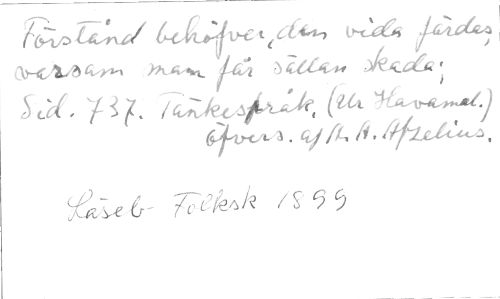 Förstånd behöfver, den vida färdas,
varsam man får sällan skada;
Sid. 737. Tänkespråk, (Ur Havamal.)
öfvers. af A. A. Afzelius.
Läseb- Folksk 1899